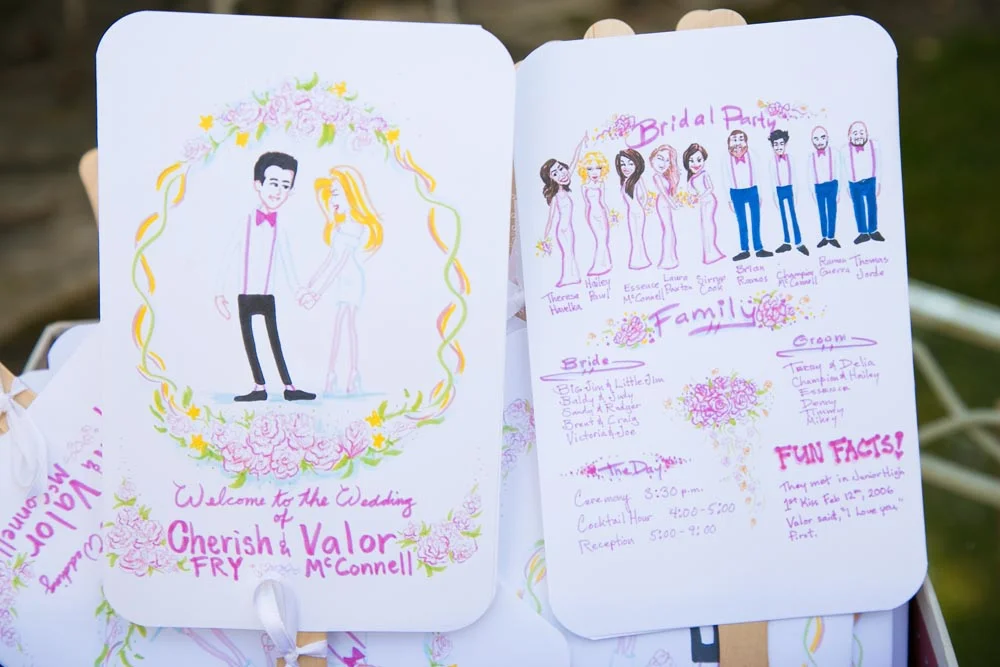 Welcome to the Wedding
of
Cherish & Valor
FRY McConnell
Bridal Party
Therese Havelka
Hailey Paul
Essence McConnell
Laura Paxton
Cook
Brian Ramos
Champion McConnell
Ramon Guerra
Thomas Jorde
Family
Bride
Big Jim & Little Jim
Baldy & Judy
Sandy & Rodger
Brent & Craig
Victoria & Joe
Groom
& Delia
Champion & Hailey
Essence
Denny
Timmy
Mikey
The Day
Ceremony 3:30 p.m.
Cocktail Hour 4:00-5:00
Reception 5:00-9:00
FUN FACTS!
They met in Junior High
1st Kiss Feb 12th, 2006
Valor said, "I love you,"
first.
Valor
McConnell
Wedding